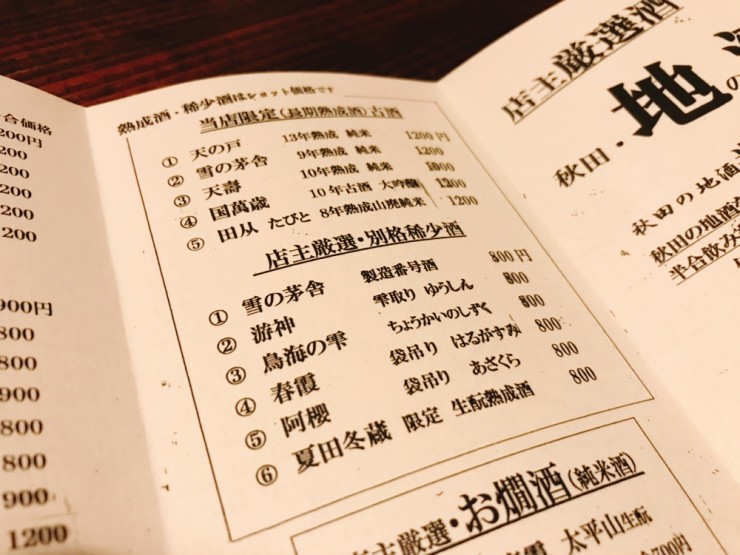 合価格
200円
200
200
200
200
900円
800
800
900
800
800
900
1200
熟成酒・稀少酒はショット価格です
当店限定(長期熟成酒)古酒
① 天の戸 13年熟成 純米 1200円
② 雪の茅舎 9年熟成 純米 1200
③ 天壽 10年熟成 純米
④ 国萬歳 10年古酒 大吟醸 1200
⑤ 田从 たびと 8年熟成山廃純米 1200
店主厳選・別格稀少酒
① 雪の茅舎 製造番号酒 800円
② 游神 雫取り ゆうしん 800
③ 鳥海の雫 ちょうかいのしずく 800
④ 春霞 袋吊り はるがすみ 800
⑤ 阿櫻 袋吊り あさくら 800
⑥ 夏田冬蔵 限定 生酛熟成酒 800
主厳選・お燗酒(純米酒)
太平山生酛
店主厳選酒
秋田・地
の
秋田の地酒
秋田の地酒
半合飲み